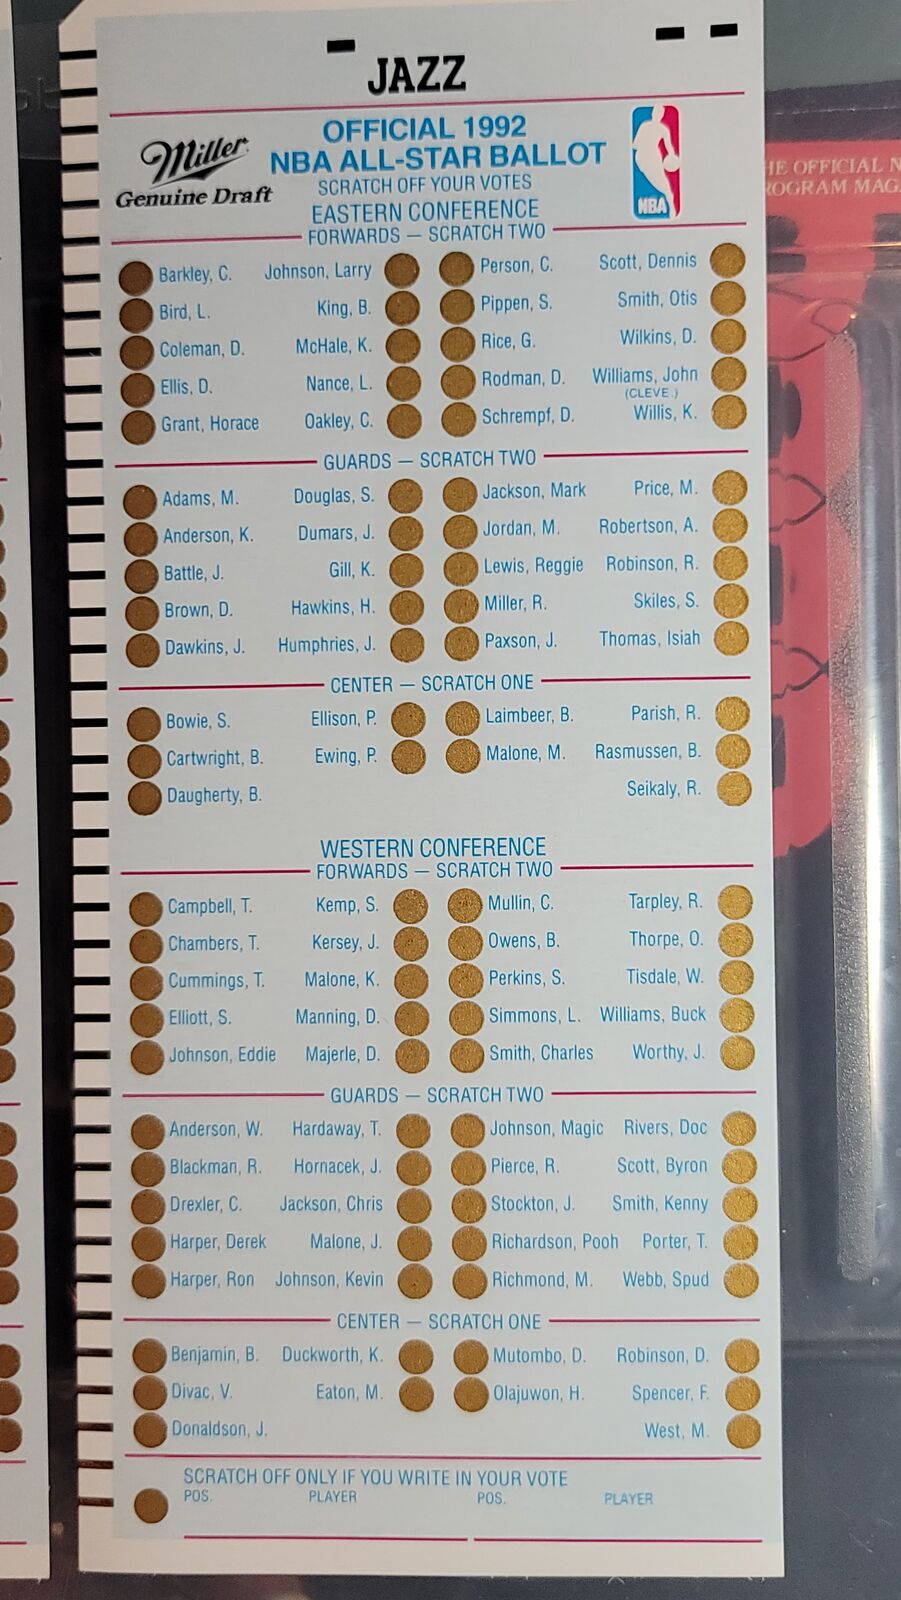 JAZZ
OFFICIAL 1992
Miller
NBA ALL-STAR BALLOT
Genuine Draft
SCRATCH OFF YOUR VOTES
NBA
EASTERN CONFERENCE
FORWARDS — SCRATCH TWO
Barkley, C. Johnson, Larry Person, C. Scott, Dennis
Bird, L. King, B. Pippen, S. Smith, Otis
Coleman, D. McHale, K. Rice, G. Wilkins, D.
Ellis, D. Nance, L. Rodman, D. Williams, John
(CLEVE.)
Grant, Horace Oakley, C. Schrempf, D. Willis, K.
GUARDS — SCRATCH TWO
Adams, M. Douglas, S. Jackson, Mark Price, M.
Anderson, K. Dumars, J. Jordan, M. Robertson, A.
Battle, J. Gill, K. Lewis, Reggie Robinson, R.
Brown, D. Hawkins, H. Miller, R. Skiles, S.
Dawkins, J. Humphries, J. Paxson, J. Thomas, Isiah
CENTER — SCRATCH ONE
Bowie, S. Ellison, P. Laimbeer, B. Parish, R.
Cartwright, B. Ewing, P. Malone, M. Rasmussen, B.
Daugherty, B. Seikaly, R.
WESTERN CONFERENCE
FORWARDS — SCRATCH TWO
Campbell, T. Kemp, S. Mullin, C. Tarpley, R.
Chambers, T. Kersey, J. Owens, B. Thorpe, O.
Cummings, T. Malone, K. Perkins, S. Tisdale, W.
Elliott, S. Manning, D. Simmons, L. Williams, Buck
Johnson, Eddie Majerle, D. Smith, Charles Worthy, J.
GUARDS — SCRATCH TWO
Anderson, W. Hardaway, T. Johnson, Magic Rivers, Doc
Blackman, R. Hornacek, J. Pierce, R. Scott, Byron
Drexler, C. Jackson, Chris Stockton, J. Smith, Kenny
Harper, Derek Malone, J. Richardson, Pooh Porter, T.
Harper, Ron Johnson, Kevin Richmond, M. Webb, Spud
CENTER — SCRATCH ONE
Benjamin, B. Duckworth, K. Mutombo, D. Robinson, D.
Divac, V. Eaton, M. Olajuwon, H. Spencer, F.
Donaldson, J. West, M.
SCRATCH OFF ONLY IF YOU WRITE IN YOUR VOTE
POS. PLAYER POS. PLAYER
OFFICIAL